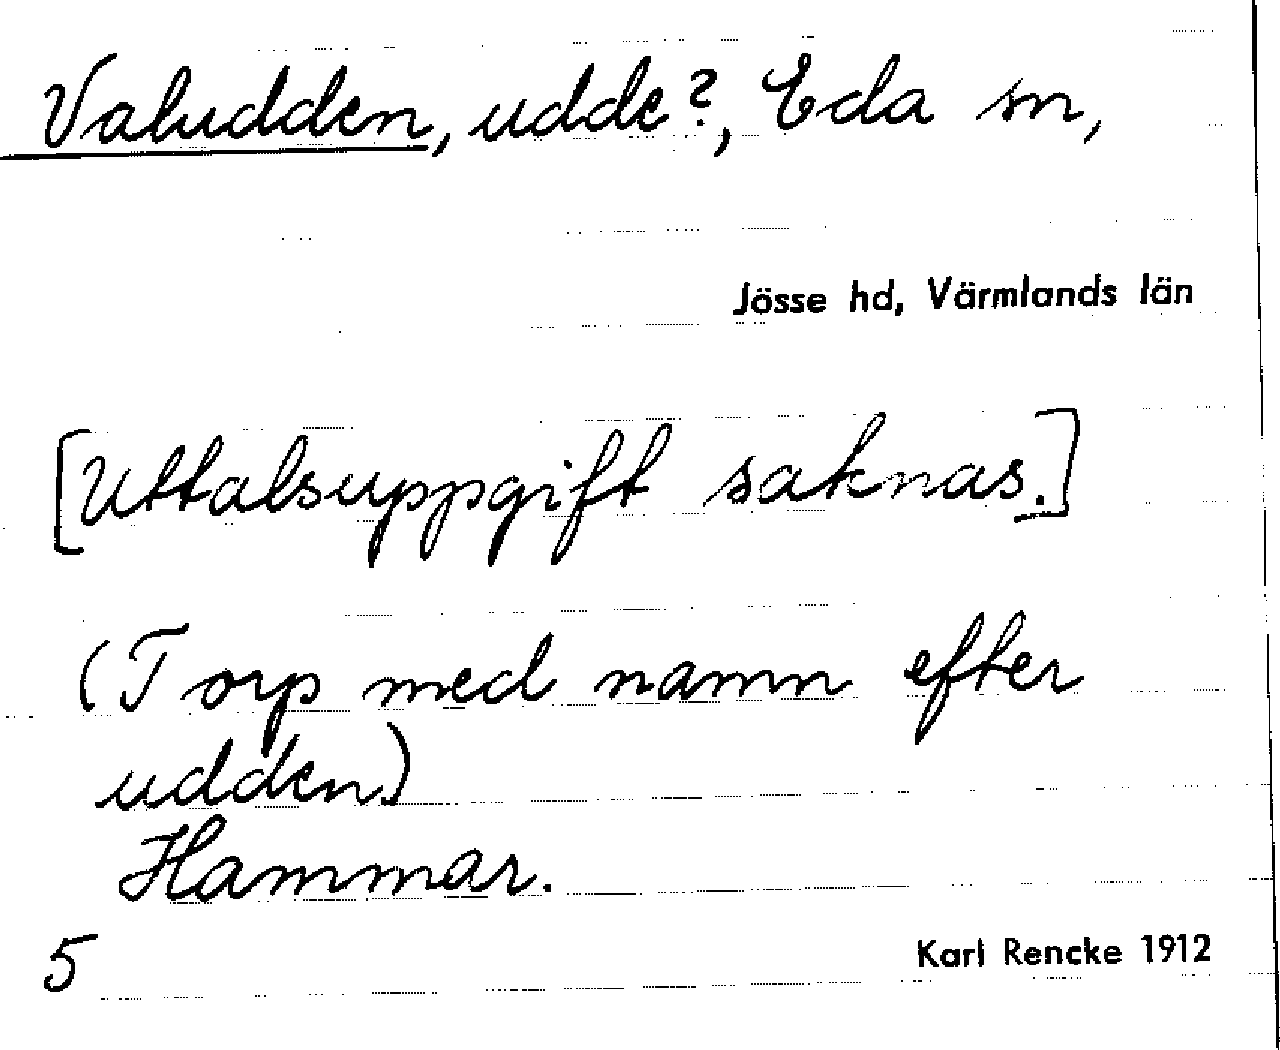 Valudden, udde?, Eda sn,
Jösse hd, Värmlands län
[Uttalsuppgift saknas.]
(Torp med namn efter
udden)
Hammar.
5
Karl Rencke 1912